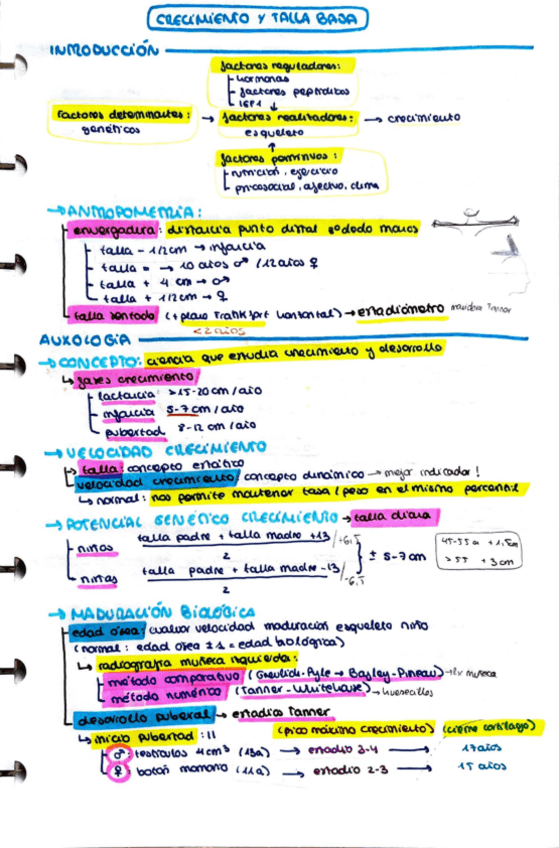 CRECIMIENTO Y TALLA BAJA
INTRODUCCIÓN
factores reguladores:
hormonas
factores peptídicos
IGF1
Factores determinantes: → factores realizadores: → crecimiento
genéticos
esqueleto
factores permisivos:
nutrición, ejercicio
psicosocial, afectivo, clima
→ ANTROPOMETRÍA:
envergadura: distancia punto distal 3º dedo manos
talla - 1/2cm → infancia
talla = → 10 años ♂ / 12 años ♀
talla + 4 cm → ♂
talla + 1/2cm → ♀
talla sentado (+ plano Frankfort horizontal) → estadiómetro Tanner
<2 años
AUXOLOGÍA
→ CONCEPTO: ciencia que estudia crecimiento y desarrollo
↳ fases crecimiento
lactancia >15-20 cm / año
infancia 5-7 cm / año
pubertad 8-12 cm / año
→ VELOCIDAD CRECIMIENTO
talla: concepto estático
velocidad crecimiento: concepto dinámico → mejor indicador!
↳ normal: nos permite mantener tasa / peso en el mismo percentil
→ POTENCIAL GENÉTICO CRECIMIENTO → talla diana
niños talla padre + talla madre +13 / 2 /+6,5
± 5-7cm
niñas talla padre + talla madre -13 / 2 /-6,5
45-55a + 1,5cm
>55 + 3cm
→ MADURACIÓN BIOLÓGICA
edad ósea: evaluar velocidad maduración esqueleto niño
(normal: edad ósea ± 1 = edad biológica)
↳ radiografía muñeca izquierda:
método comparativo (Greulich-Pyle → Bayley-Pineau) → Rx muñeca
método numérico (Tanner-Whitehouse) → huesecillos
desarrollo puberal → estadios Tanner
↳ inicio pubertad: II (pico máximo crecimiento) (cierre cartílago)
♂: testículos 4cm³ (13a) → estadio 3-4 → 17 años
♀: botón mamario (11a) → estadio 2-3 → 15 años